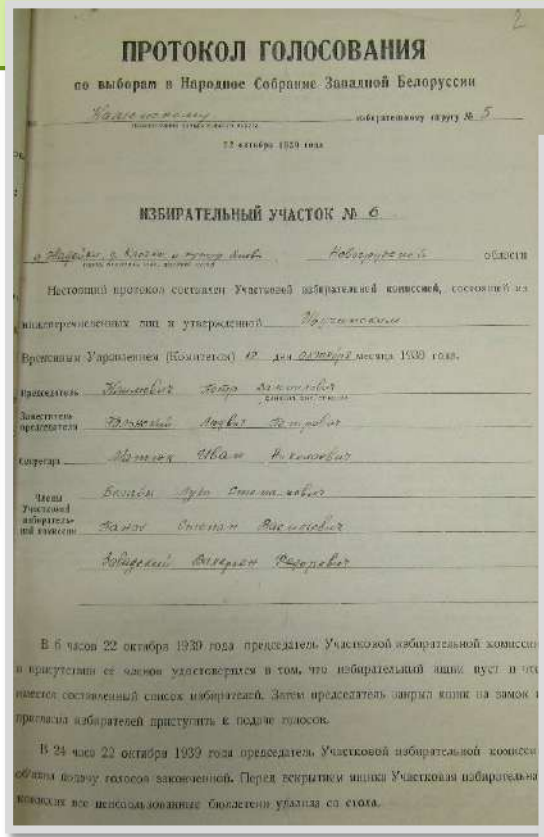 2
ПРОТОКОЛ ГОЛОСОВАНИЯ
по выборам в Народное Собрание Западной Белоруссии
избирательному округу № 5
22 октября 1939 года
ИЗБИРАТЕЛЬНЫЙ УЧАСТОК № 6
области
Настоящий протокол составлен Участковой избирательной комиссией, состоящей из
нижеперечисленных лиц и утвержденной Щучинским
Временным Управлением (Комитетом) 12 дня октября месяца 1939 года.
Председатель Климович Петр
Заместитель
председателя Людвиг Петрович
Секретарь Иван Николаевич
Члены
Участковой
избиратель-
ной комиссии
Степан Васильевич
Завадский Валерьян Федорович
В 6 часов 22 октября 1939 года председатель Участковой избирательной комиссии
в присутствии ее членов удостоверился в том, что избирательный ящик пуст и что
имеется составленный список избирателей. Затем председатель закрыл ящик на замок и
пригласил избирателей приступить к подаче голосов.
В 24 часа 22 октября 1939 года председатель Участковой избирательной комисси
объявил подачу голосов законченной. Перед вскрытием ящика Участковая избирательна
комиссия все неиспользованные бюллетени удалила со стола.